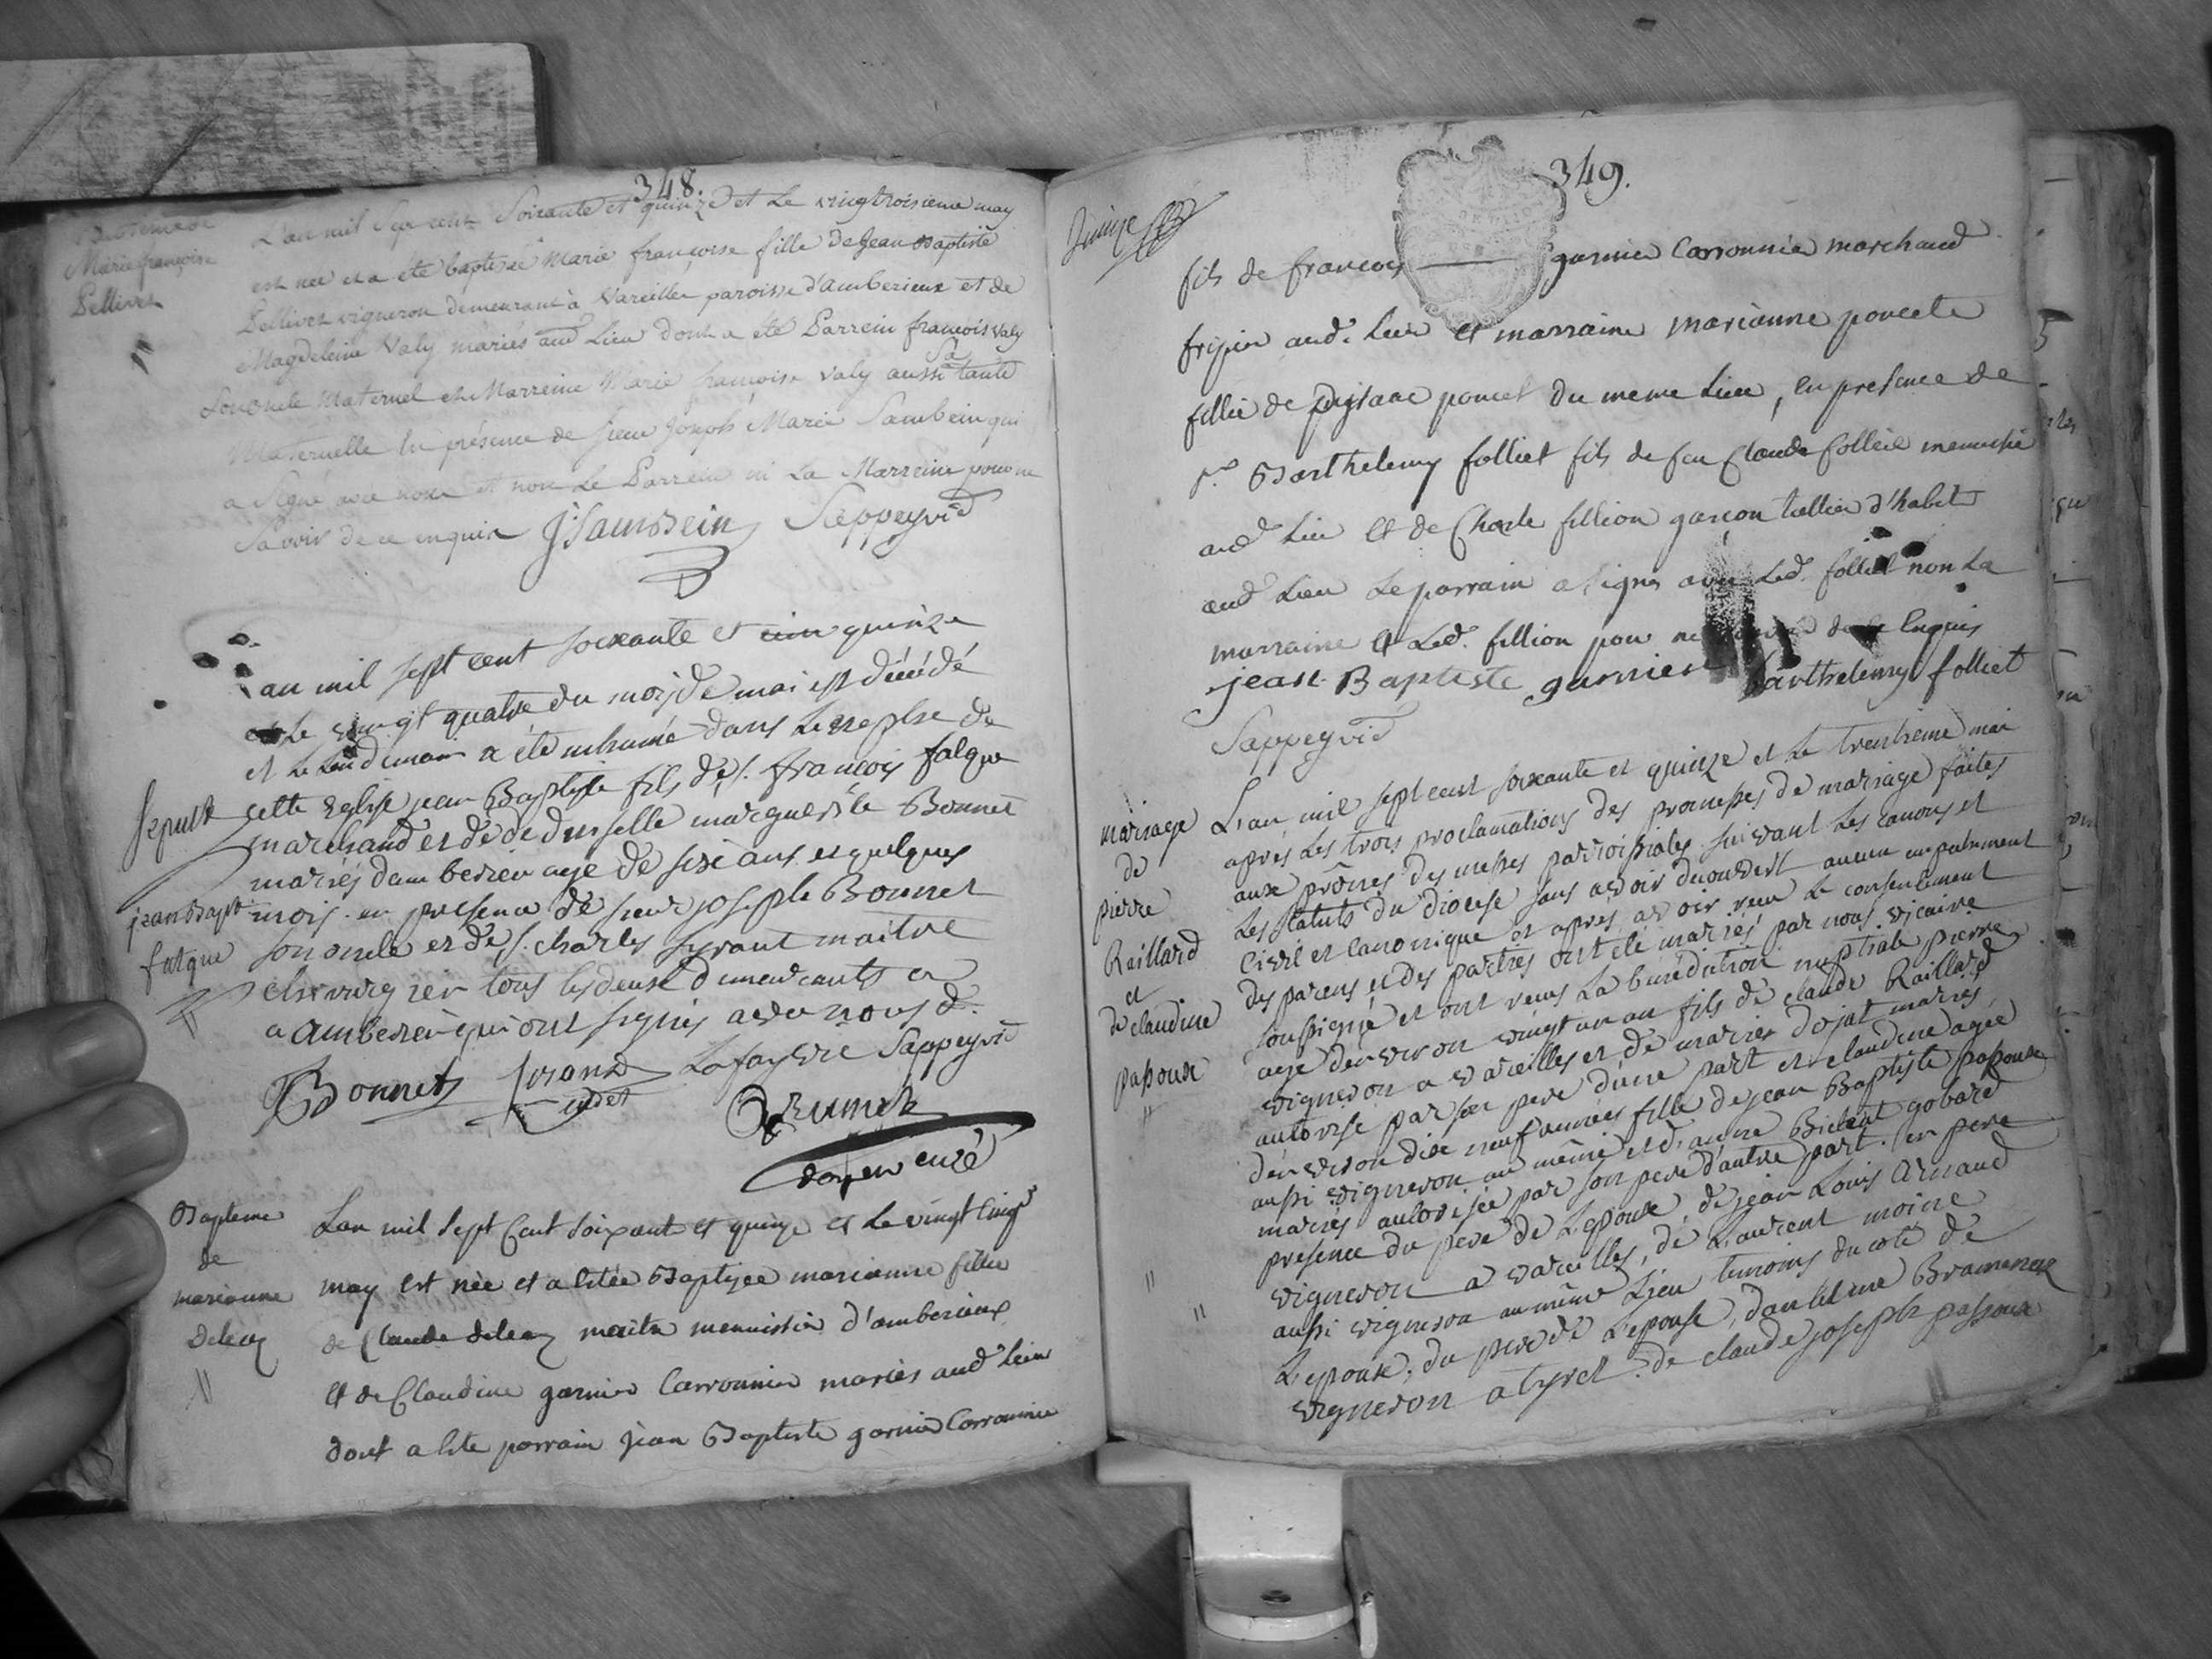 348.
Marie françoise
Pellivet
L'an mil sept cent soixante et quinze et Le vingtroisieme may
est née et a été baptisée Marie françoise fille de Jean Baptiste
Pellivet vigneron demeurant à Vareilles paroisse d'amberieux et de
Magdeleine Valy mariés aud Lieu dont a été Parrein françois Valy
son oncle Maternel et Marreine Marie françoise Valy aussi sa tante
Maternelle en présence de sieur Joseph Marie Sambein qui
a signé avec nous et non Le Parrein ni La Marreine pour ne
savoir de ce enquis J Sambein Sappeyvid
Sepult
jean Bapt
falque
L'an mil sept cent soixante et quinze
et Le vingt quatre du mois de mai est décédé
et Le lendemain a été inhumé dans
cette Eglise jean Baptiste fils de s. françois falque
marchand et de demoiselle marguerite Bonnet
mariés damberieu agé de six ans et quelques
mois. en presence de sieur joseph Bonnet
son oncle et de s. charles sirant maitre
chirurgien tous les deux demeurants
a amberieu qui ont signés avec nous
Bonnet sirand cadet Lafay vic Sappeyvid
doyen curé
Bapteme
de
marianne
Deleaz
Lan mil sept Cent soixante et quinze et le vingt cinq
may est née et a etée Baptizée marianne fillie
de Claude deleaz maitre menuissier d'amberieux
et de Claudine garnier Carronnier mariés aud lieu
dont a ete parrain jean Baptiste garnier Carronnier
349.
fils de francois garnier Carronnier marchand
fripier aud. lieu et marraine marianne poncete
fillie de poncet du meme lieu, en presence de
sr. Barthelemy folliet fils de feu Claude folliet menuisié
aud lieu et de Charle fillion garçon tallier d'habit
aud lieu le parrain a signé avec led. folliet non la
marraine et led. fillion pour ne enquis
jean Baptiste garnier Barthelemy folliet
Sappeyvid
mariage
de
pierre
Raillard
et
de claudine
passoux
L'an mil sept cent soixante et quinze et Le trentieme mai
après Les trois proclamations des promesses de mariage faites
aux prônes des messes parroissiales suivant Les canons et
Les statuts du diocese sans avoir decouvert aucun empechement
civil et canonique et après avoir reçu Le consentement
des parens et des parties ont été mariés par nous vicaire
soussigné et ont reçus La benediction nuptiale pierre
agé denviron vingt un an fils de claude Raillard
vigneron a vareilles et de marie dojat mariés
autorisé par son pere d'une part et claudine agée
denviron dixe neuf années fille de jean Baptiste passoux
aussi vigneron au même et d'anne gobard
mariés autorisée par son pere d'autre part. en
presence du pere de L'epoux, de jean Louis arnaud
vigneron a vareilles, de Laurent moine
aussi vigneron au même Lieu temoins du coté de
L'epoux; du pere de L'epouse, d'anthelme Bramerel
vigneron a tyret. de claude joseph passoux